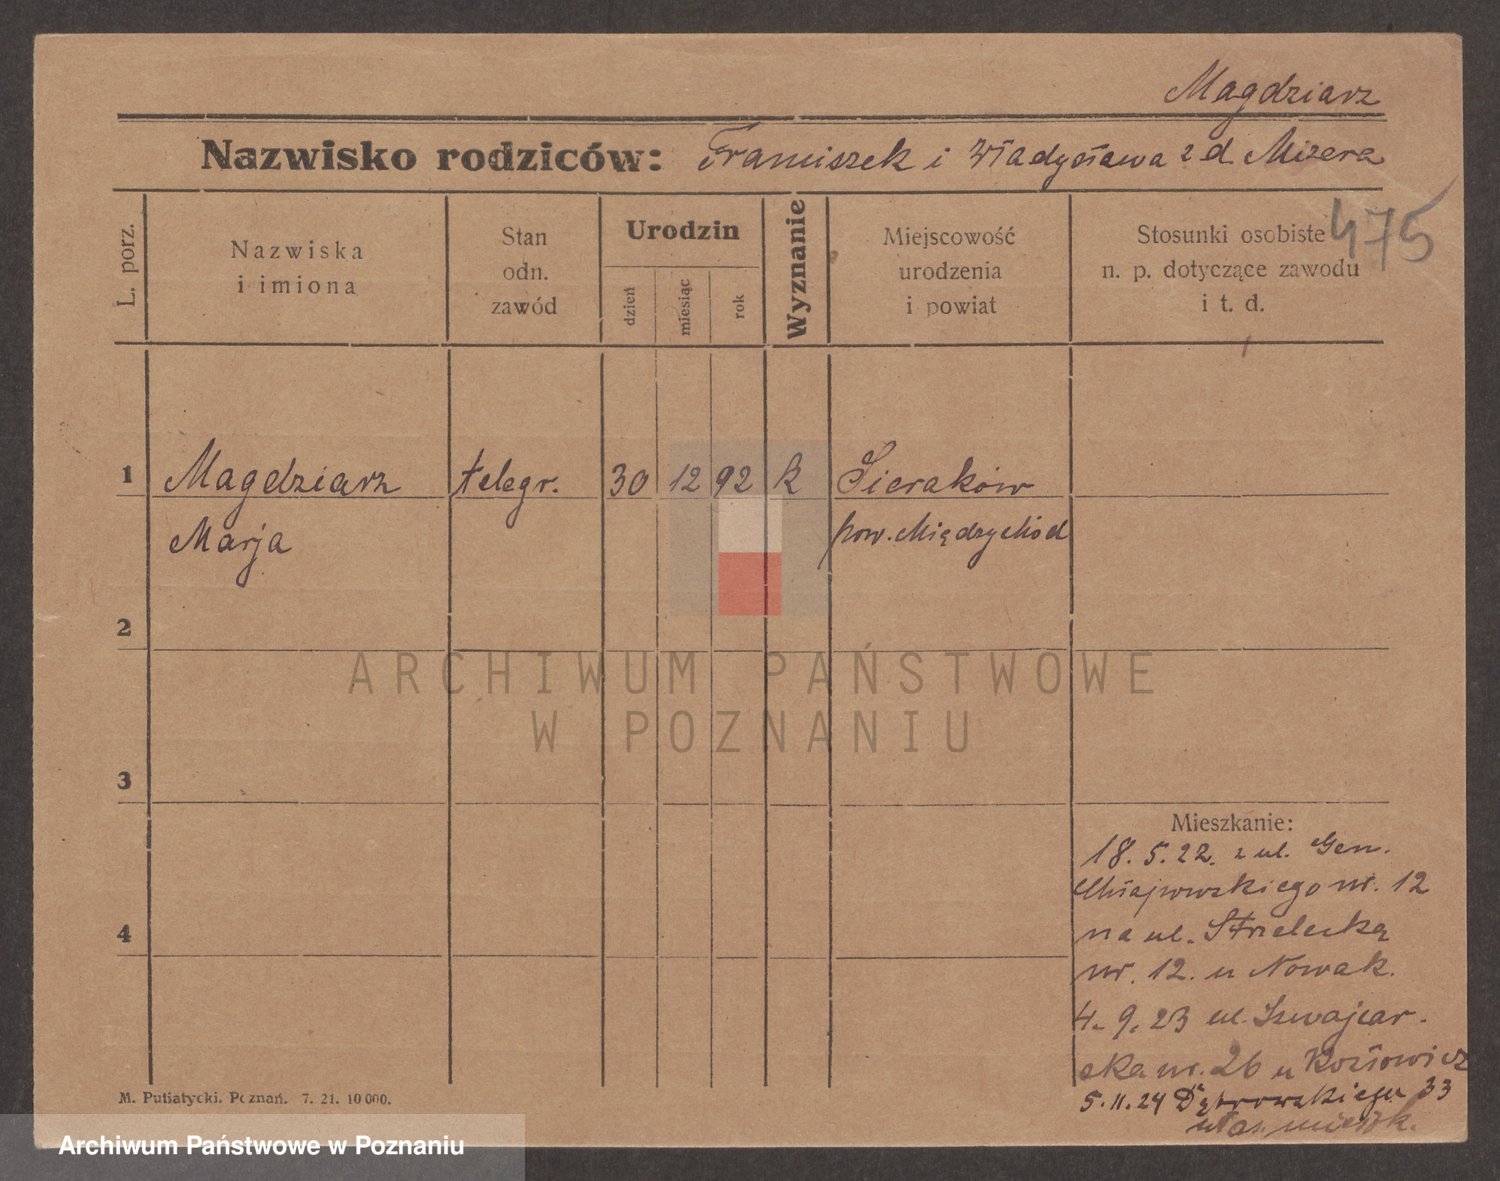 Magdziarz
Nazwisko rodziców: Franciszek i Władysława z d. Mizera
475
L. porz.
Nazwiska
i imiona
Stan
odn.
zawód
Urodzin
dzień
miesiąc
rok
Wyznanie
Miejscowość
urodzenia
i powiat
Stosunki osobiste
n. p. dotyczące zawodu
i t. d.
1 Magdziarz telegr. 30 12 92 k Sieraków
Marja pow. Międzychód
2
ARCHIWUM PAŃSTWOWE
W POZNANIU
3
Mieszkanie:
18. 5. 22. z ul. Gen.
nr. 12
4 na ul. Strzelecką
nr. 12. u Nowak.
4. 9. 23 ul. Szwajcar-
ska nr. 26 u
5. 11. 24 Dąbrowskiego 33
własn. mieszk.
M. Putiatycki. Poznań. 7. 21. 10 000.
Archiwum Państwowe w Poznaniu